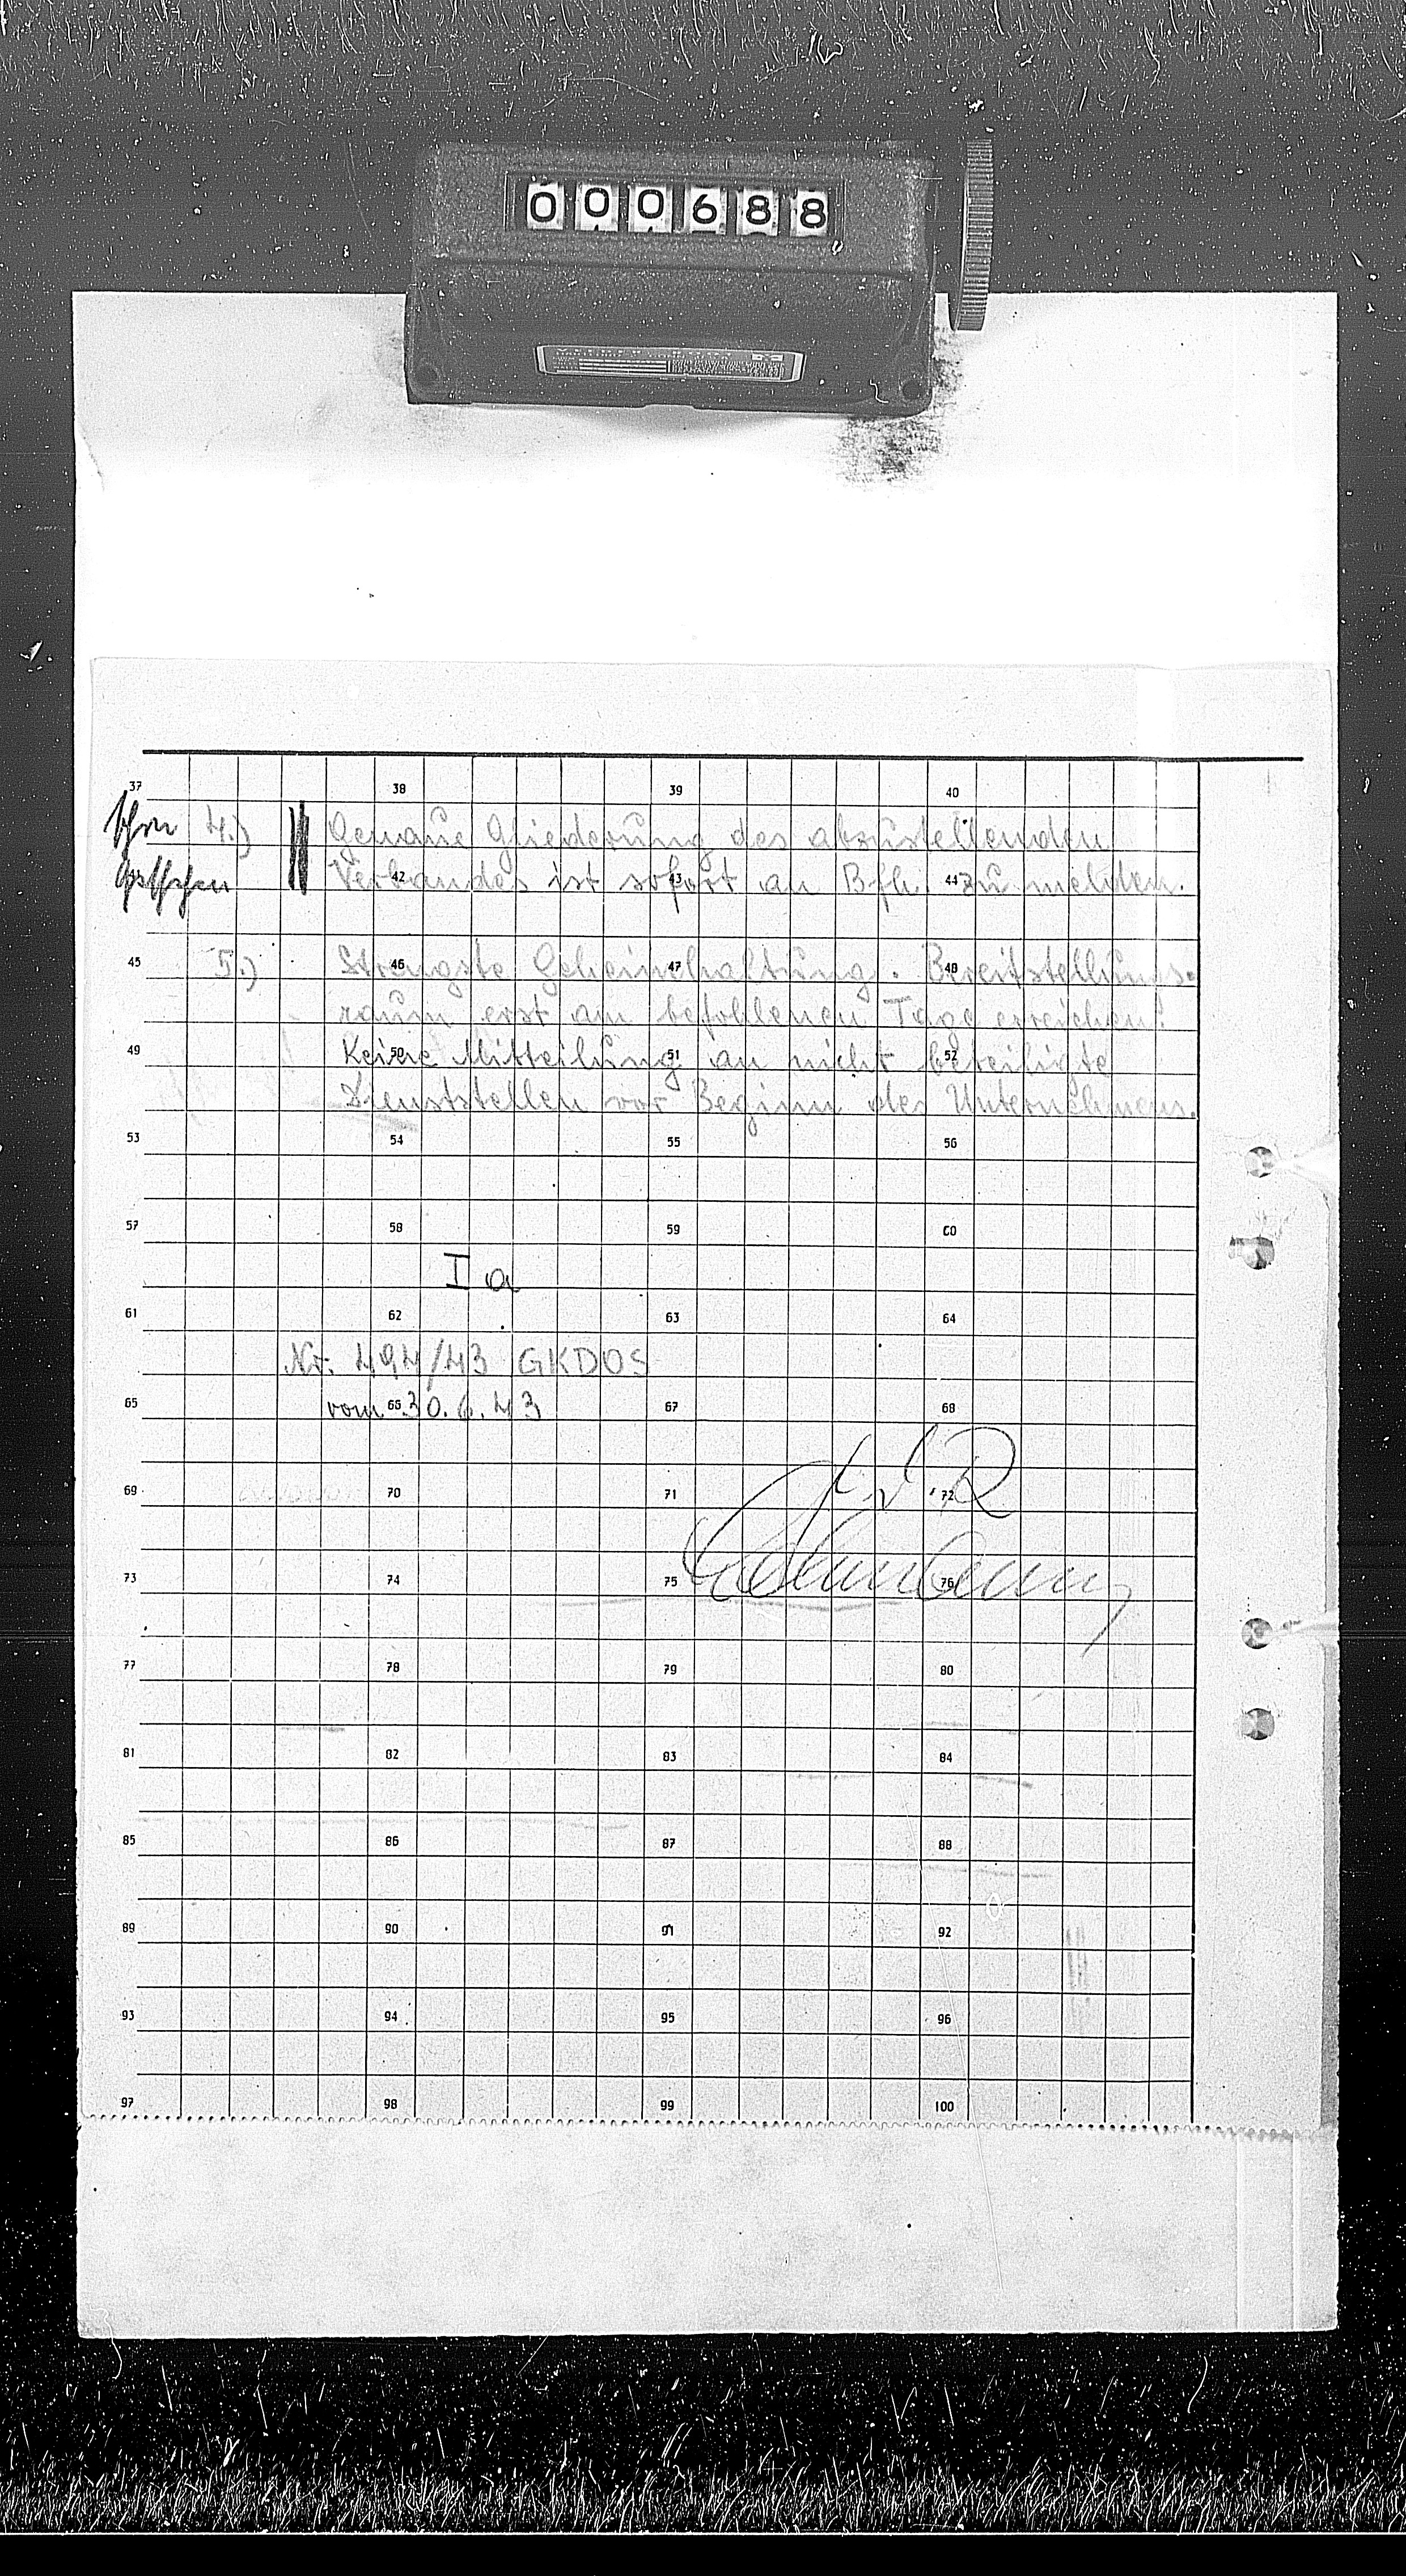 000688
37 38 39 40
4.) Genaue Gliederung des abzustellenden
Verbandes ist sofort an Bfh. zu melden.
42 43 44
45 46 47 48
5.) Strengste Geheimhaltung. Bereitstellungs-
raum erst am befohlenen Tage erreichen!
49 50 51 52
Keine Mitteilung an nicht beteiligte
Dienststellen vor Beginn des Unternehmens.
53 54 55 56
57 58 59 60
I a
61 62 63 64
Nr. 494/43 GKDOS
65 66 67 68
vom 30.6.43
69 70 71 72
73 74 75 76
77 78 79 80
81 82 83 84
85 86 87 88
89 90 91 92
93 94 95 96
97 98 99 100